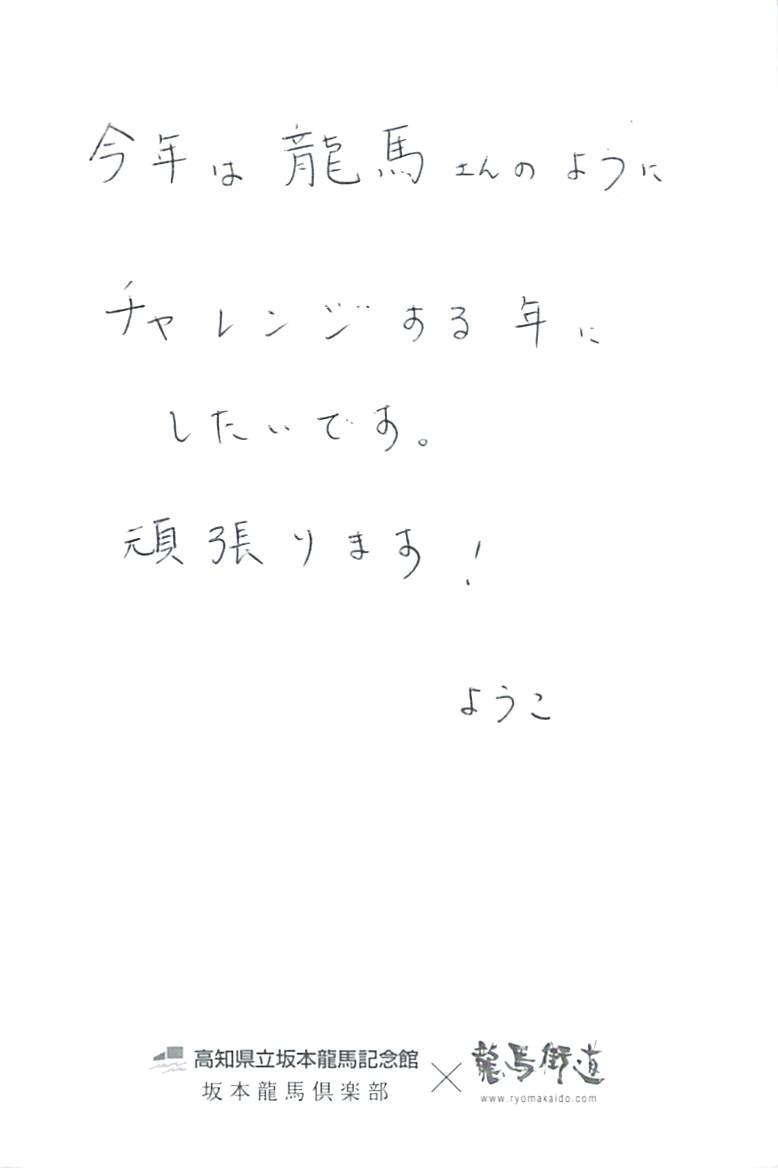 今年は龍馬さんのように
チャレンジする年に
したいです。
頑張ります!
ようこ
高知県立坂本龍馬記念館
坂本龍馬倶楽部
×
龍馬街道
www.ryomakaido.com